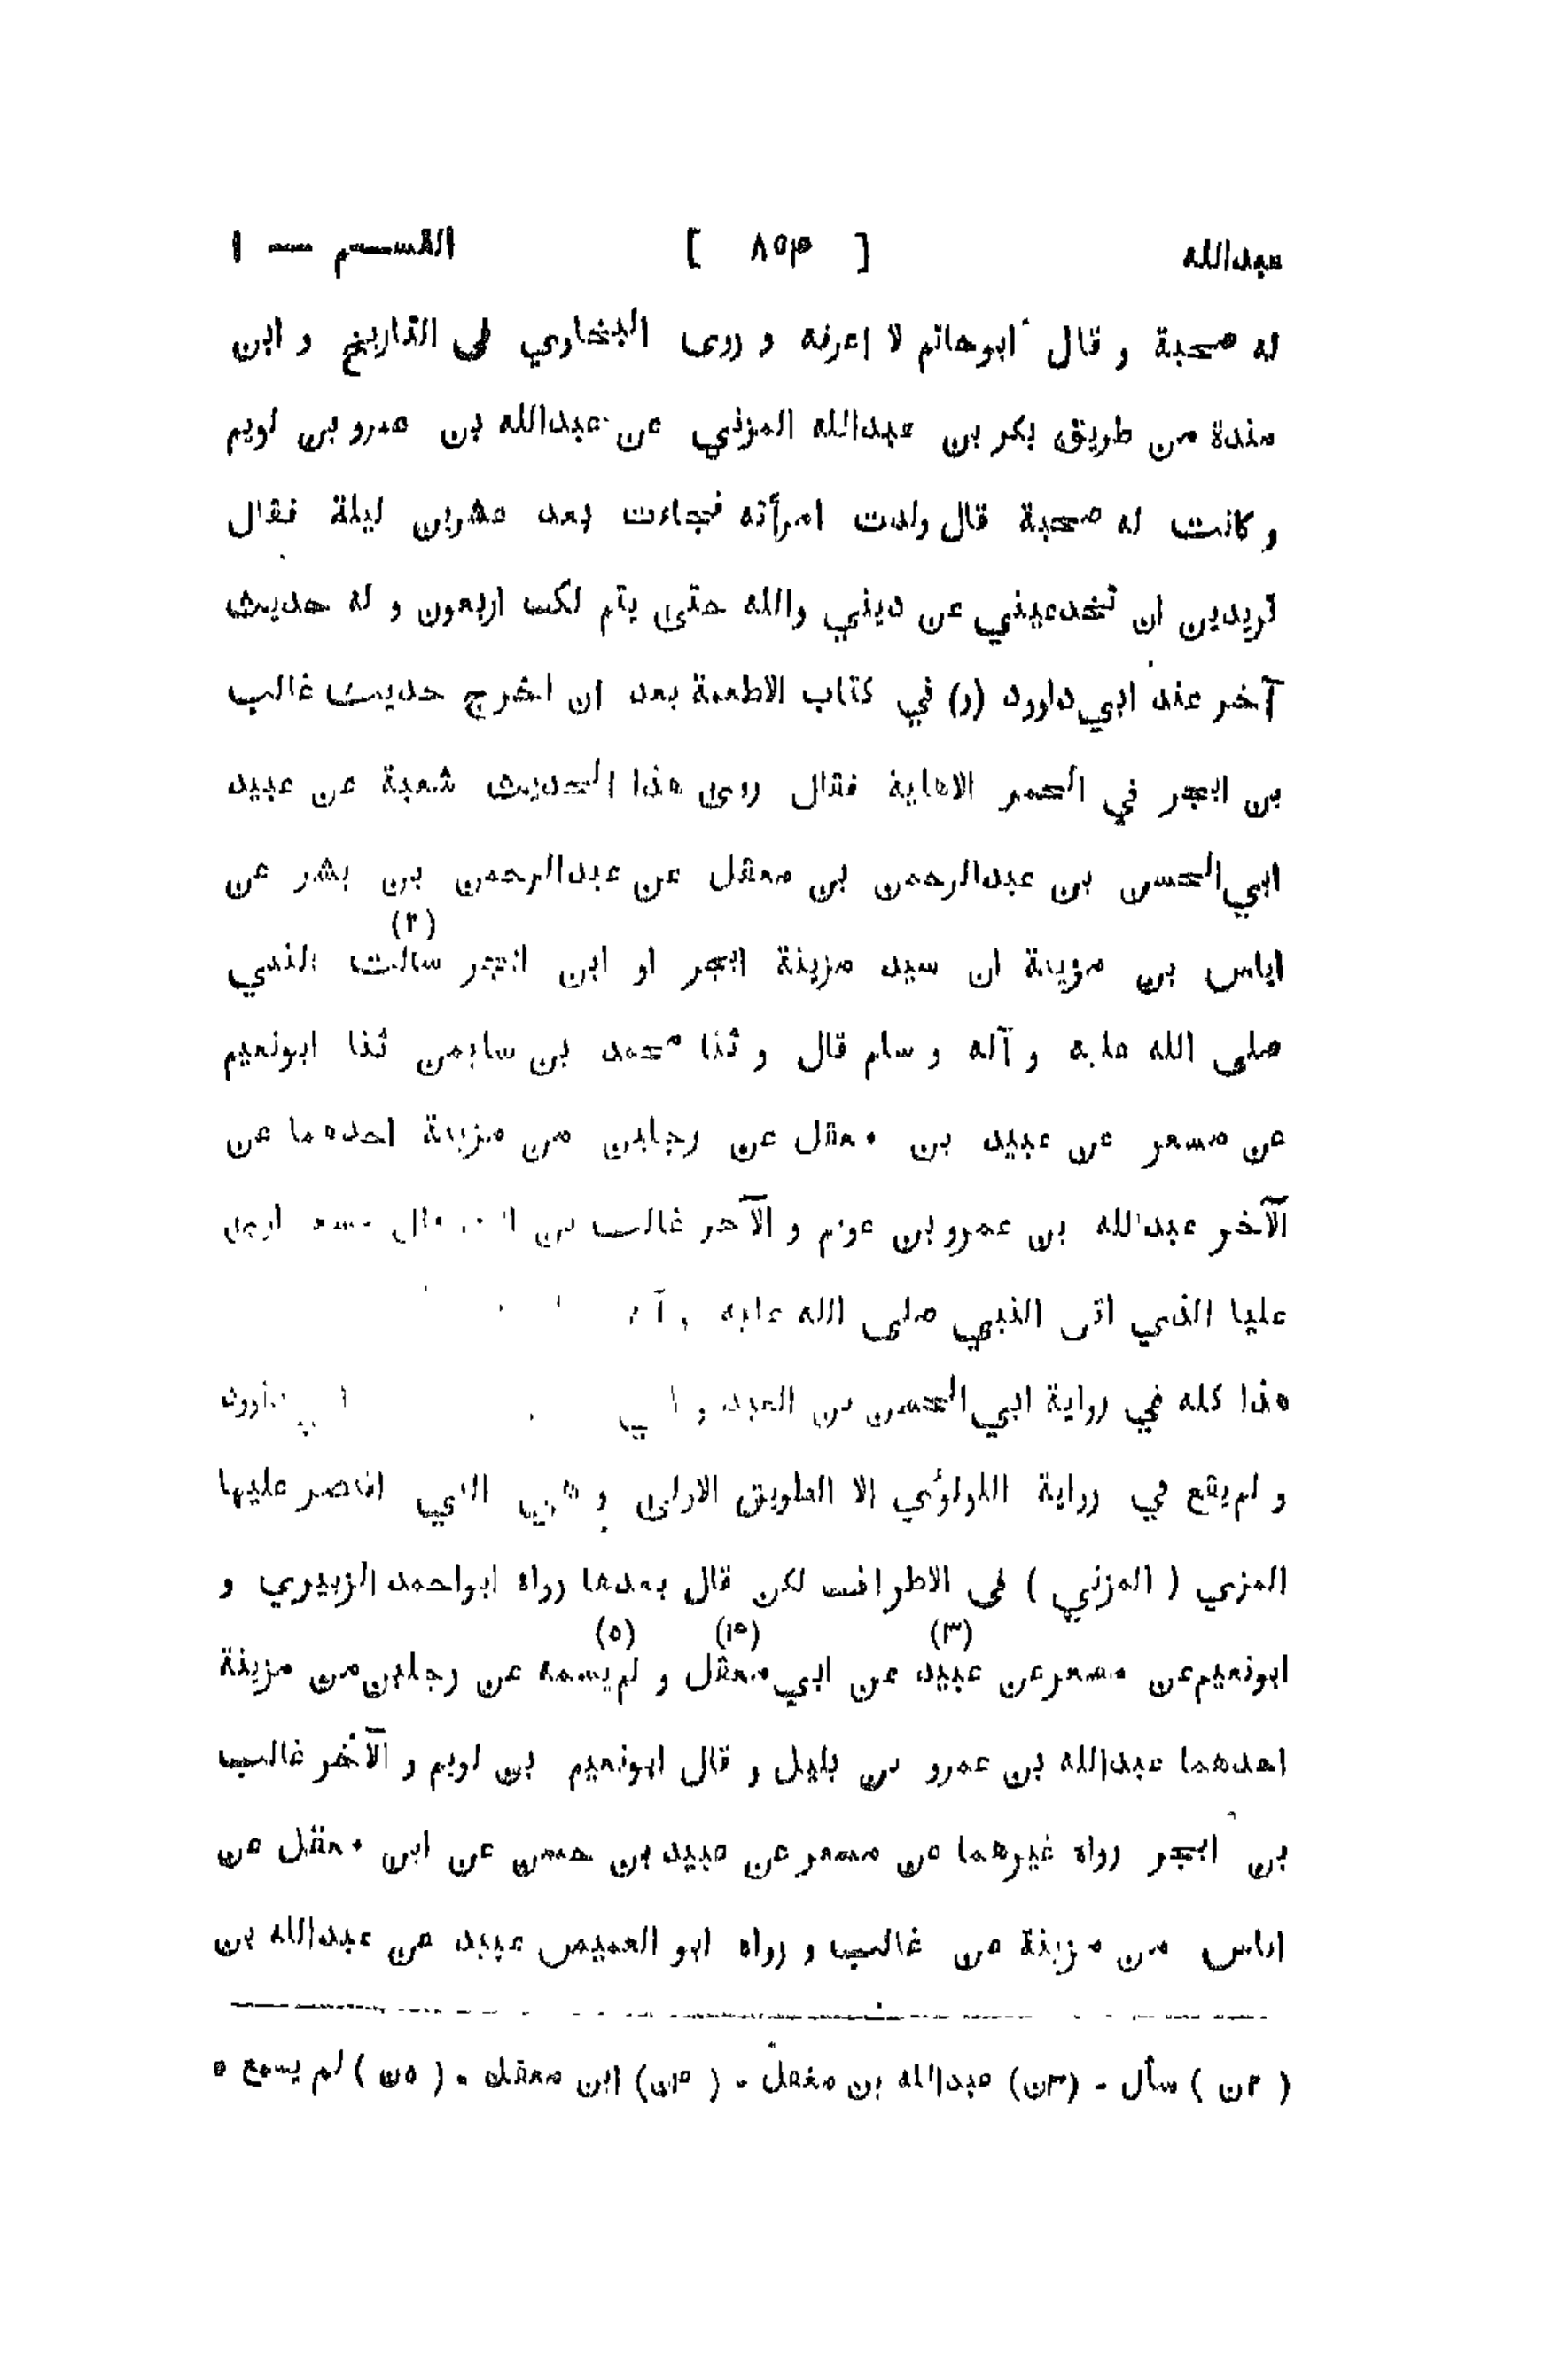 عبدالله [ ٨٥٣ ] القســـم — ١
له صحبة و قال ابوحاتم لا اعرفه و روى البخاري فى التاريخ و ابن
مندة من طريق بكر بن عبدالله المزني عن عبدالله بن عمرو بن لويم
و كانت له صحبة قال ولدت امرأته فجاءت بعد عشرين ليلة فقال
تريدين ان تخدعيني عن ديني والله حتى يتم لك اربعون و له حديث
آخر عند ابي داوود (د) في كتاب الاطعمة بعد ان اخرج حديث غالب
بن ابجر في الحمر الاهلية فقال روى هذا الحديث شعبة عن عبيد
ابي الحسن بن عبدالرحمن بن معقل عن عبدالرحمن بن بشر عن
اناس بن مزينة ان سيد مزينة ابجر او ابن ابجر سالت (٢) النبي
صلى الله عليه و آله و سلم قال و ثنا محمد بن سليمن ثنا ابونعيم
عن مسعر عن عبيد بن معقل عن رجلين من مزينة احدهما عن
الآخر عبدالله بن عمرو بن عويم و الآخر غالب بن قال مسعر ارى
عليا الذي اتى النبي صلى الله عليه
هذا كله في رواية ابي الحسن بن العبد و داوود
و لم يقع في رواية اللولوئي الا الطريق الاولى و التي اقتصر عليها
المزي ( المزني ) فى الاطراف لكن قال بعدها رواه ابو احمد الزبيري و
ابونعيم عن مسعر عن عبيد (٣) عن ابي معقل (٤) و لم يسمه (٥) عن رجلين من مزينة
احدهما عبدالله بن عمرو بن بليل و قال ابونعيم بن لويم و الآخر غالب
بن ابجر رواه غيرهما عن مسعر عن عبيد بن حسن عن ابن معقل عن
اناس من مزينة عن غالب و رواه ابو العميس عبيد عن عبدالله بن
( ٢ن ) سأل - (٣ن) عبدالله بن مغفل - ( ٤ن) ابن معقل - ( ٥ن ) لم يسمع ه